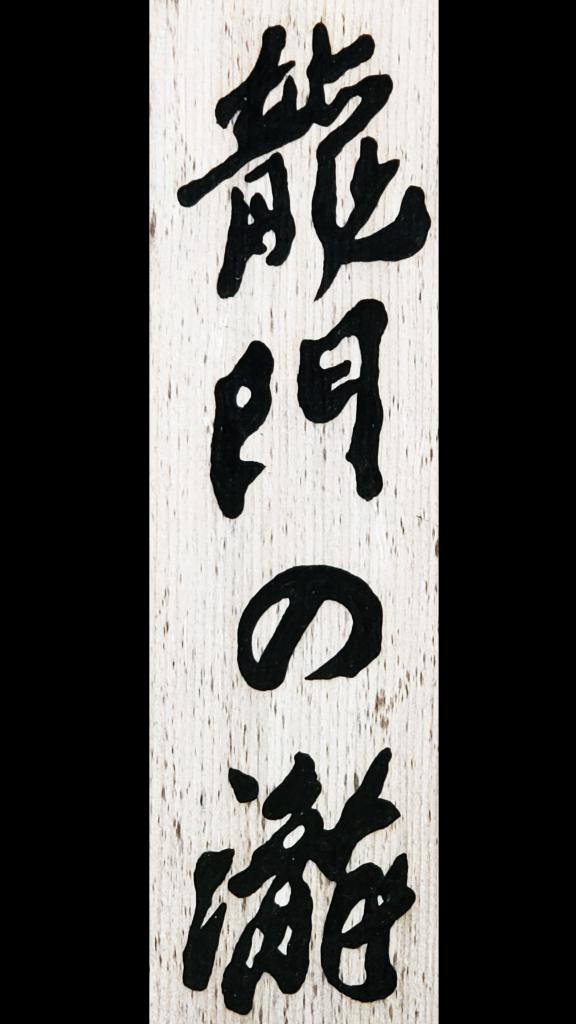 龍門の瀧